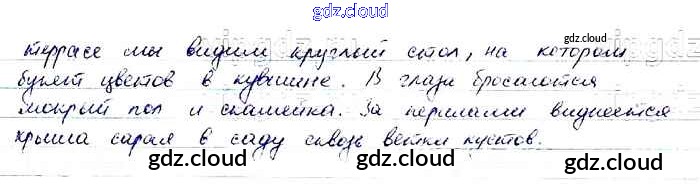 gdz.cloud
террасе мы видим круглый стол, на котором
букет цветов в кувшине. В глаза бросаются
мокрый пол и скамейка. За перилами виднеется
крыша сарая в саду сквозь ветки кустов.
gdz.cloud gdz.cloud gdz.cloud gdz.cloud